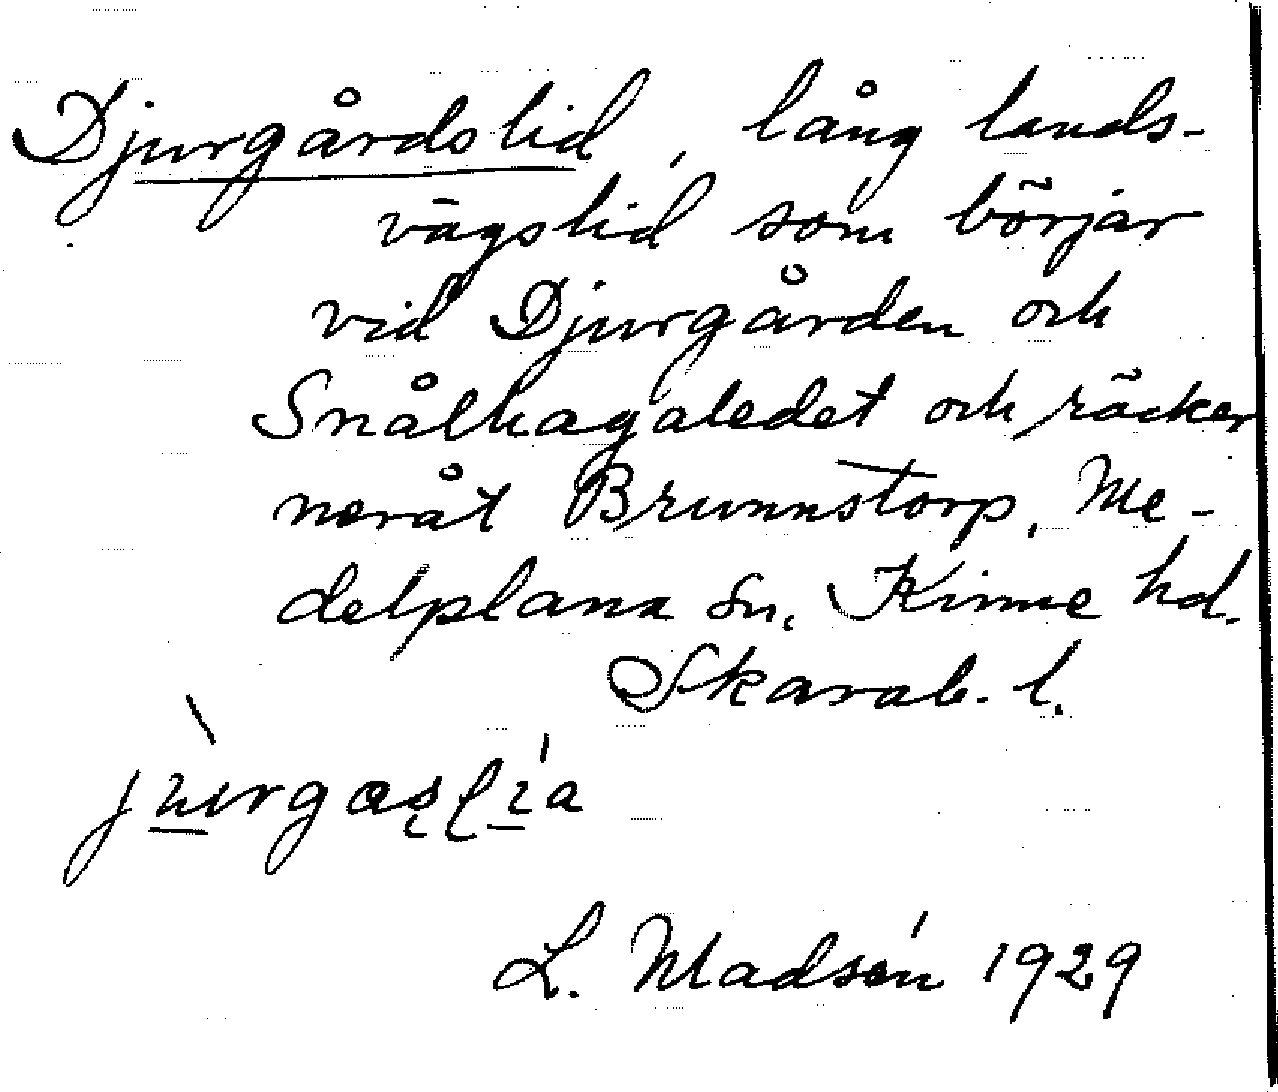 Djurgårdslid, lång lands-
vägslid som börjar
vid Djurgården och
Snålhagaledet och räcker
neråt Brunnstorp, Me-
delplana sn, Kinne hd.
Skarab. l.
L. Madsén 1929